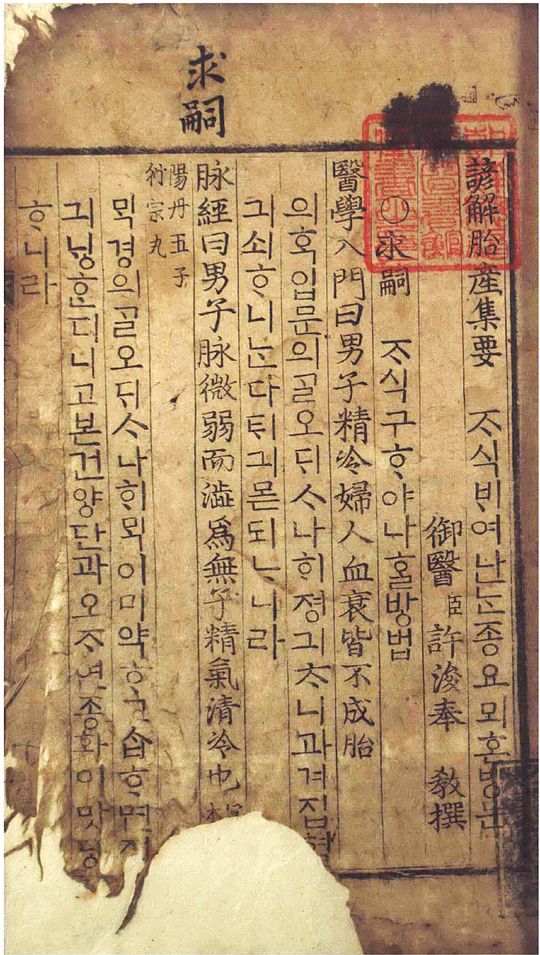 求嗣
諺解胎産集要 ᄌᆞ식ᄇᆡ여난ᄂᆞᆫ종요뫼혼방문
御醫臣許浚奉 敎撰
○求嗣 ᄌᆞ식구ᄒᆞ야나홀방법
醫學入門曰男子精冷婦人血衰皆不成胎
의ᄒᆞᆨ입문의ᄀᆞᆯ오ᄃᆡᄉᆞ나ᄒᆡ졍긔ᄎᆞ니과겨집혈
긔쇠ᄒᆞ니ᄂᆞᆫ다ᄐᆡ긔몯되ᄂᆞ니라
脉經曰男子脉微弱而澁爲無子精氣清冷也
陽丹五子
衍宗丸
ᄆᆡᆨ경의ᄀᆞᆯ오ᄃᆡᄉᆞ나ᄒᆡᄆᆡᆨ이미약ᄒᆞ고습ᄒᆞ면
긔ᄂᆡᆼᄒᆞᆫ디니고본건양단과오ᄌᆞ연종환이맛당
ᄒᆞ니라